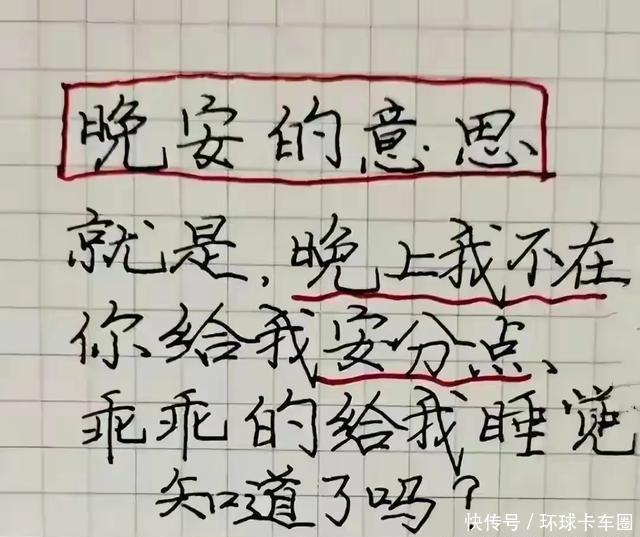 晚安的意思
就是,晚上我不在
你给我安分点、
乖乖的给我睡觉
知道了吗?
快传号/环球卡车圈